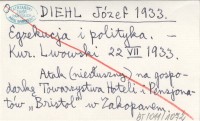 DIEHL Józef 1933.
Egzekucja i polityka. -
Kur. Lwowski 22 VII 1933.
Atak (niesłuszny) na gospo-
darkę Towarzystwa Hoteli i Pensjona-
tów „Bristol" w Zakopanem.